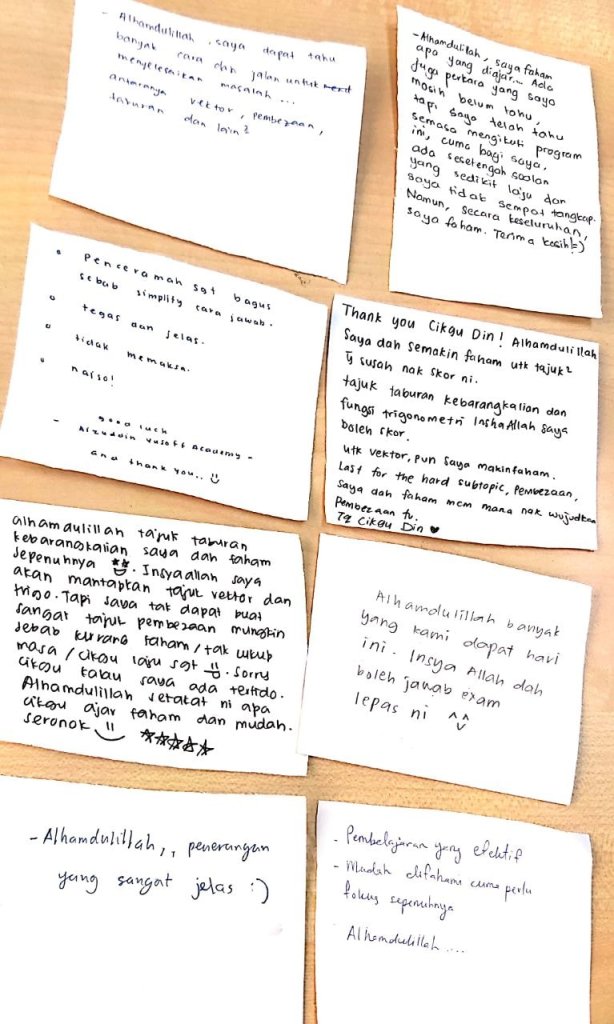 - Alhamdulillah, saya dapat tahu
banyak cara dan jalan untuk
menyelesaikan masalah ...
antaranya vektor, pembezaan,
taburan dan lain²
- Alhamdulillah, saya faham
apa yang diajar... Ada
juga perkara yang saya
masih belum tahu,
tapi saya telah tahu
semasa mengikuti program
ini, cuma bagi saya,
ada sesetengah soalan
yang sedikit laju dan
saya tidak sempat tangkap.
Namun, secara keseluruhan,
saya faham. Terima kasih! =)
• Penceramah sgt bagus
sebab simplify cara jawab.
• tegas dan jelas.
• tidak memaksa.
• naiso!
good luck
- Aizuddin Yusoff Academy -
and thank you..
Thank you Cikgu Din! Alhamdulillah
Saya dah semakin faham utk tajuk²
yg susah nak skor ni.
tajuk taburan kebarangkalian dan
fungsi trigonometri InshaAllah saya
boleh skor.
utk vektor, pun saya makin faham.
Last for the hard subtopic, Pembezaan,
saya dah faham mcm mana nak wujudkan
pembezaan tu.
Tq Cikgu Din ♥
alhamdulillah tajuk taburan
kebarangkalian saya dah faham
sepenuhnya. Insyaallah saya
akan mantapkan tajuk vektor dan
trigo. Tapi saya tak dapat buat
sangat tajuk pembezaan mungkin
sebab kurang faham/tak cukup
masa/cikgu laju sgt. Sorry
cikgu kalau saya ada tertido.
Alhamdulillah setakat ni apa
cikgu ajar faham dan mudah.
seronok ☆☆☆☆☆
Alhamdulillah banyak
yang kami dapat hari
ini. Insya Allah dah
boleh jawab exam
lepas ni ^^
- Alhamdulillah,, penerangan
yang sangat jelas :)
- Pembelajaran yang efektif
- Mudah difahami cuma perlu
fokus sepenuhnya
Alhamdulillah....